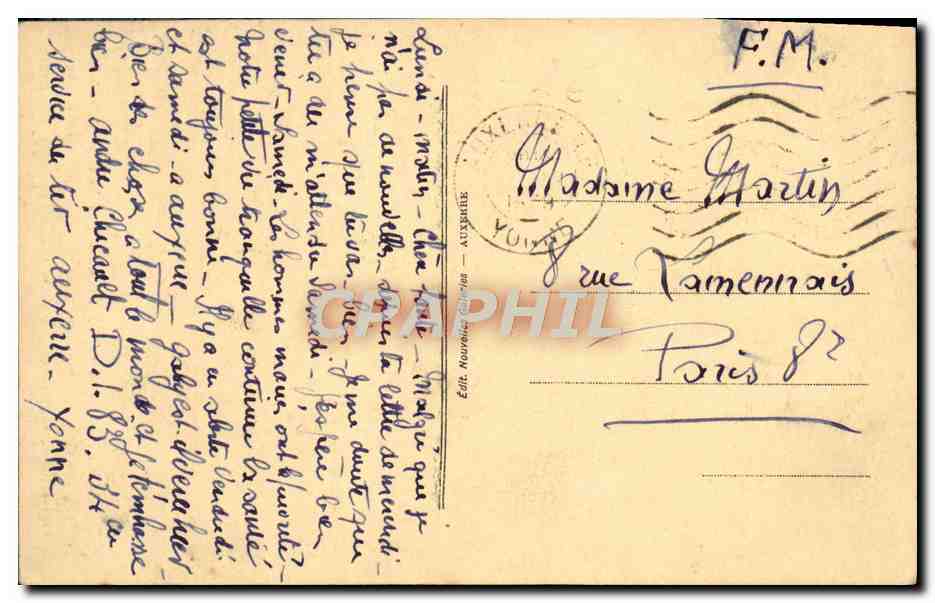 F.M.
Madame Martin
8 rue Lamennais
Paris 8e
Lundi - matin - Chère tante - Malgré que je
n'ai pas de nouvelles depuis ta lettre de mercredi -
je pense que tu vas bien - Je me doute que
tu as dû m'attendre Samedi -
venir - Samedi - Les hommes mariés ont la priorité -
Notre petite vie tranquille continue la santé
est toujours bonne - Il y a eu alerte Vendredi
et samedi - a auxerre -
Bien des choses à tout le monde et je t'embrasse
bien - andré D.I. 83. 34 au
service de tir auxerre - Yonne
Edit. Nouvelles Galeries - AUXERRE
AUXERRE
YONNE
CRAPHIL